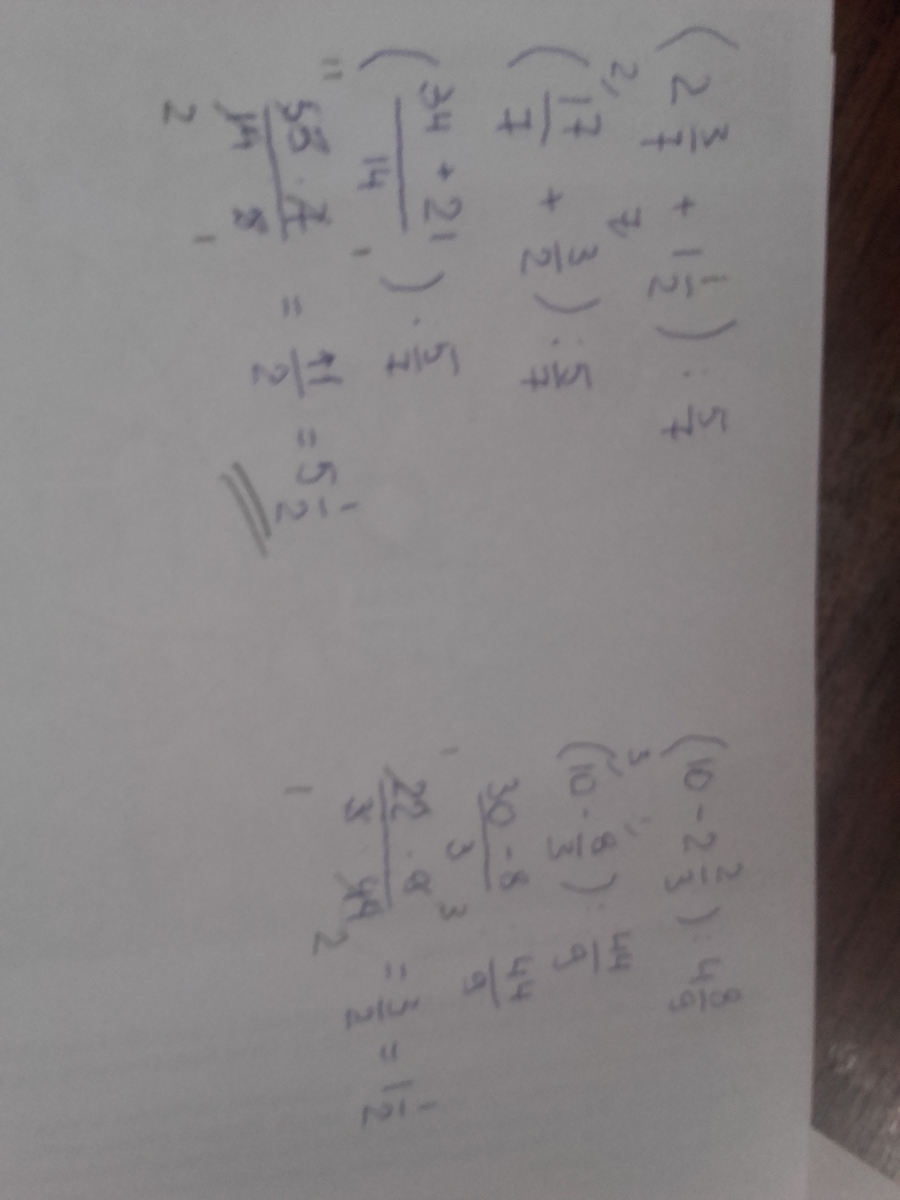 (2 3/7 + 1 1/2) : 5/7
2 7
(17/7 + 3/2) : 5/7
(34 + 21 / 14) : 5/7
11 1
55 · 7 / 14 · 5 = 11/2 = 5 1/2
2 1
(10 - 2 2/3) : 4 8/9
3 1
(10 - 8/3) : 44/9
30 - 8 / 3 : 44/9
1 3
22 · 9 / 3 · 44 = 3/2 = 1 1/2
1 2